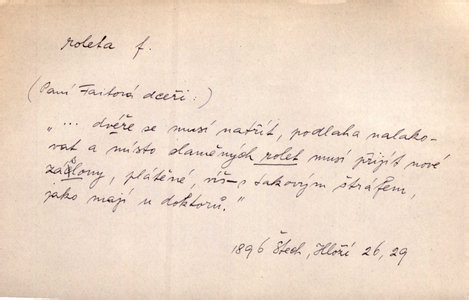 roleta f.
(Paní Faitová dceři:)
"... dvéře se musí natřít, podlaha nalako-
vat a místo slaměných rolet musí přijít nové
záclony, plátěné, víš - s takovým štráfem,
jako mají u doktorů."
1896 Štech, Hloží 26, 29